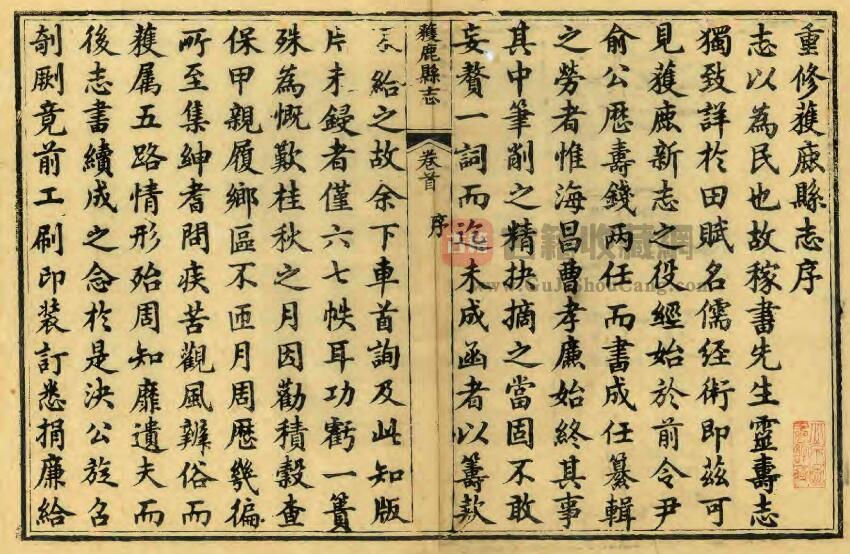 重修獲鹿縣志序
志以為民也故稼書先生靈壽志
獨致詳於田賦名儒經術即茲可
見獲鹿新志之役經始於前令尹
俞公歷壽錢兩任而書成任纂輯
之勞者惟海昌曹孝廉始終其事
其中筆削之精抉摘之當固不敢
妄贅一詞而迄未成函者以籌款
獲鹿縣志
卷首
序
給之故余下車首詢及此知版
片未鋟者僅六七帙耳功虧一簣
殊為慨歎桂秋之月因勸積穀查
保甲親履鄉區不匝月周歷幾徧
所至集紳耆問疾苦觀風辨俗而
獲属五路情形殆周知靡遺夫而
後志書續成之念於是決公旋名
剞劂竟前工刷印裝訂悉捐廉給
古籍收藏網
www.GuJiShouCang.com